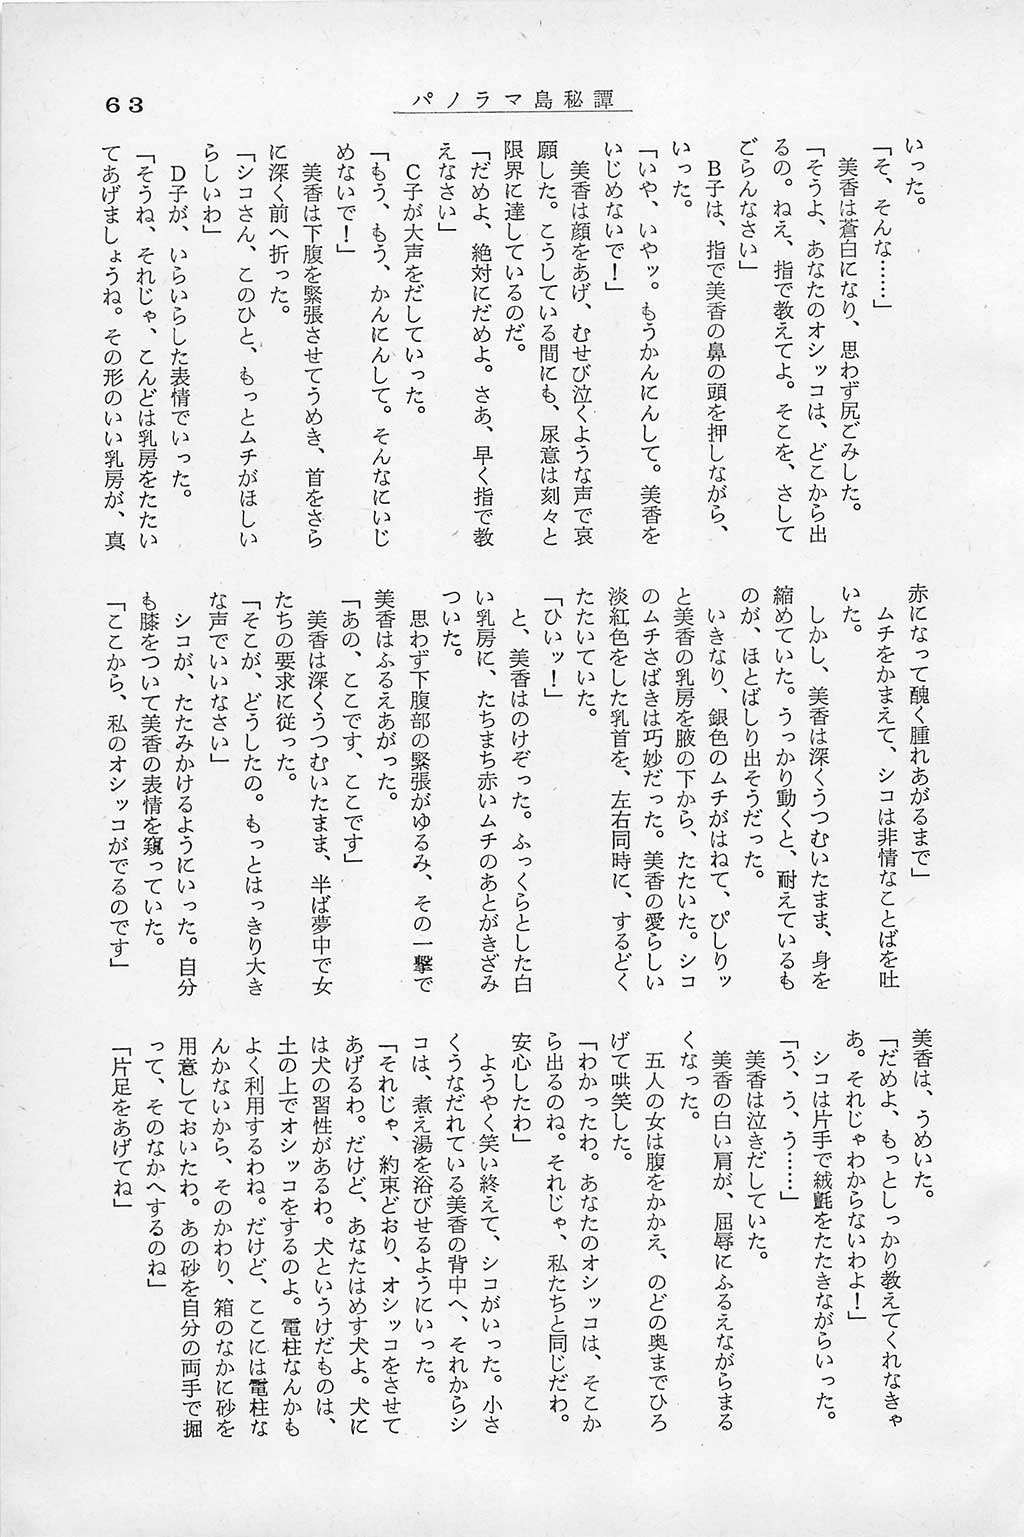 63
パノラマ島秘譚
いった。
「そ、そんな……」
美香は蒼白になり、思わず尻ごみした。
「そうよ、あなたのオシッコは、どこから出
るの。ねえ、指で教えてよ。そこを、さして
ごらんなさい」
B子は、指で美香の鼻の頭を押しながら、
いった。
「いや、いやッ。もうかんにんして。美香を
いじめないで！」
美香は顔をあげ、むせび泣くような声で哀
願した。こうしている間にも、尿意は刻々と
限界に達しているのだ。
「だめよ、絶対にだめよ。さあ、早く指で教
えなさい」
C子が大声をだしていった。
「もう、もう、かんにんして。そんなにいじ
めないで！」
美香は下腹を緊張させてうめき、首をさら
に深く前へ折った。
「シコさん、このひと、もっとムチがほしい
らしいわ」
D子が、いらいらした表情でいった。
「そうね、それじゃ、こんどは乳房をたたい
てあげましょうね。その形のいい乳房が、真
赤になって醜く腫れあがるまで」
ムチをかまえて、シコは非情なことばを吐
いた。
しかし、美香は深くうつむいたまま、身を
縮めていた。うっかり動くと、耐えているも
のが、ほとばしり出そうだった。
いきなり、銀色のムチがはねて、ぴしりッ
と美香の乳房を腋の下から、たたいた。シコ
のムチさばきは巧妙だった。美香の愛らしい
淡紅色をした乳首を、左右同時に、するどく
たたいていた。
「ひいッ！」
と、美香はのけぞった。ふっくらとした白
い乳房に、たちまち赤いムチのあとがきざみ
ついた。
思わず下腹部の緊張がゆるみ、その一撃で
美香はふるえあがった。
「あの、ここです、ここです」
美香は深くうつむいたまま、半ば夢中で女
たちの要求に従った。
「そこが、どうしたの。もっとはっきり大き
な声でいいなさい」
シコが、たたみかけるようにいった。自分
も膝をついて美香の表情を窺っていた。
「ここから、私のオシッコがでるのです」
美香は、うめいた。
「だめよ、もっとしっかり教えてくれなきゃ
あ。それじゃわからないわよ！」
シコは片手で絨氈をたたきながらいった。
「う、う、う……」
美香は泣きだしていた。
美香の白い肩が、屈辱にふるえながらまる
くなった。
五人の女は腹をかかえ、のどの奥までひろ
げて哄笑した。
「わかったわ。あなたのオシッコは、そこか
ら出るのね。それじゃ、私たちと同じだわ。
安心したわ」
ようやく笑い終えて、シコがいった。小さ
くうなだれている美香の背中へ、それからシ
コは、煮え湯を浴びせるようにいった。
「それじゃ、約束どおり、オシッコをさせて
あげるわ。だけど、あなたはめす犬よ。犬に
は犬の習性があるわ。犬というけだものは、
土の上でオシッコをするのよ。電柱なんかも
よく利用するわね。だけど、ここには電柱な
んかないから、そのかわり、箱のなかに砂を
用意しておいたわ。あの砂を自分の両手で掘
って、そのなかへするのね」
「片足をあげてね」